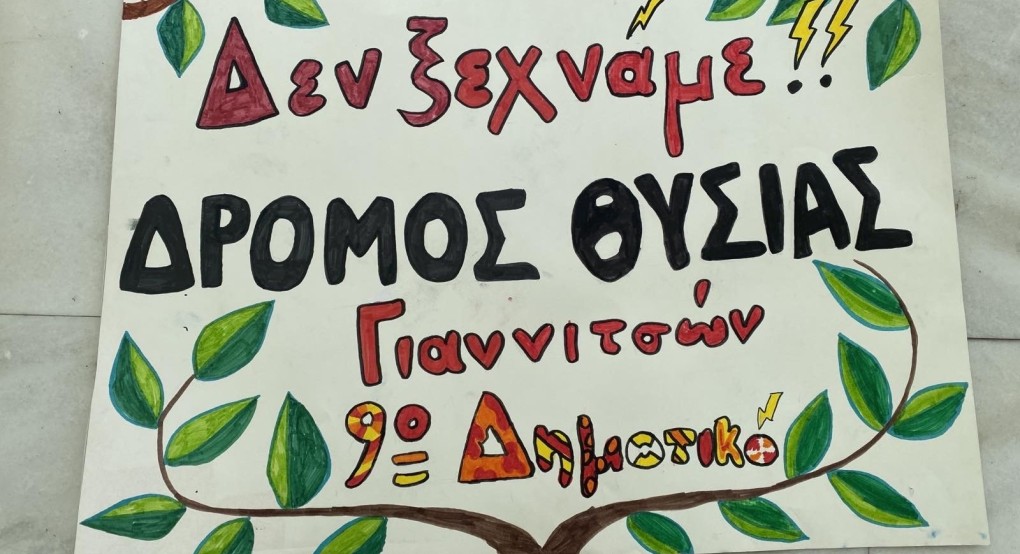 Δεν ξεχνάμε!!
ΔΡΟΜΟΣ ΘΥΣΙΑΣ
Γιαννιτσών
9ο Δημοτικό